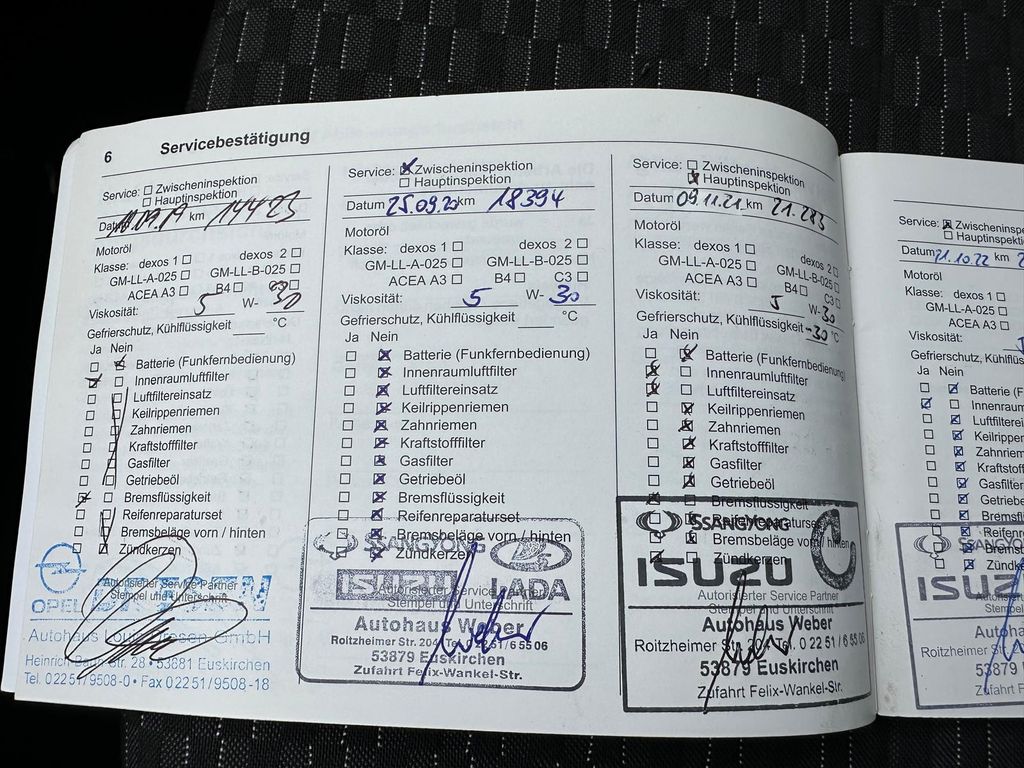 6 Servicebestätigung
Service: Zwischeninspektion
Hauptinspektion
Datum 09.19 km 14423
Motoröl
Klasse: dexos 1 dexos 2
GM-LL-A-025 GM-LL-B-025
ACEA A3 B4 C3
Viskosität: 5 W- 30
Gefrierschutz, Kühlflüssigkeit °C
Ja Nein
Batterie (Funkfernbedienung)
Innenraumluftfilter
Luftfiltereinsatz
Keilrippenriemen
Zahnriemen
Kraftstofffilter
Gasfilter
Getriebeöl
Bremsflüssigkeit
Reifenreparaturset
Bremsbeläge vorn / hinten
Zündkerzen
Autorisierter Service Partner
Stempel und Unterschrift
OPEL
Autohaus GmbH
Heinrich- Str. 28 • 53881 Euskirchen
Tel. 02251/9508-0 • Fax 02251/9508-18
Service: Zwischeninspektion
Hauptinspektion
Datum 25.09.20 km 18394
Motoröl
Klasse: dexos 1 dexos 2
GM-LL-A-025 GM-LL-B-025
ACEA A3 B4 C3
Viskosität: 5 W- 30
Gefrierschutz, Kühlflüssigkeit °C
Ja Nein
Batterie (Funkfernbedienung)
Innenraumluftfilter
Luftfiltereinsatz
Keilrippenriemen
Zahnriemen
Kraftstofffilter
Gasfilter
Getriebeöl
Bremsflüssigkeit
Reifenreparaturset
Bremsbeläge vorn / hinten
Zündkerzen
SSANGYONG
ISUZU LADA
Autorisierter Service Partner
Stempel und Unterschrift
Autohaus Weber
Roitzheimer Str. 204 Tel. 0 22 51 / 6 55 06
53879 Euskirchen
Zufahrt Felix-Wankel-Str.
Service: Zwischeninspektion
Hauptinspektion
Datum 09.11.21 km 21.283
Motoröl
Klasse: dexos 1 dexos 2
GM-LL-A-025 GM-LL-B-025
ACEA A3 B4 C3
Viskosität: 5 W- 30
Gefrierschutz, Kühlflüssigkeit -30 °C
Ja Nein
Batterie (Funkfernbedienung)
Innenraumluftfilter
Luftfiltereinsatz
Keilrippenriemen
Zahnriemen
Kraftstofffilter
Gasfilter
Getriebeöl
Bremsflüssigkeit
Reifenreparaturset
Bremsbeläge vorn / hinten
Zündkerzen
SSANGYONG
ISUZU
Autorisierter Service Partner
Stempel und Unterschrift
Autohaus Weber
Roitzheimer Str. 204 Tel. 0 22 51 / 6 55 06
53879 Euskirchen
Zufahrt Felix-Wankel-Str.
Service: Zwischeninspe
Hauptinspekt
Datum 21.10.22 km 2
Motoröl
Klasse: dexos 1
GM-LL-A-025
ACEA A3
Viskosität:
Gefrierschutz, Kühlflüss
Ja Nein
Batterie (F
Innenraum
Luftfilterei
Keilrippen
Zahnriem
Kraftstoff
Gasfilter
Getriebe
Bremsfl
Reifenre
Bremsb
Zündk
SSANG
ISUZ
Autoris
Stem
Autoha
Roitzheimer Str.
53879
Zufahrt Fel